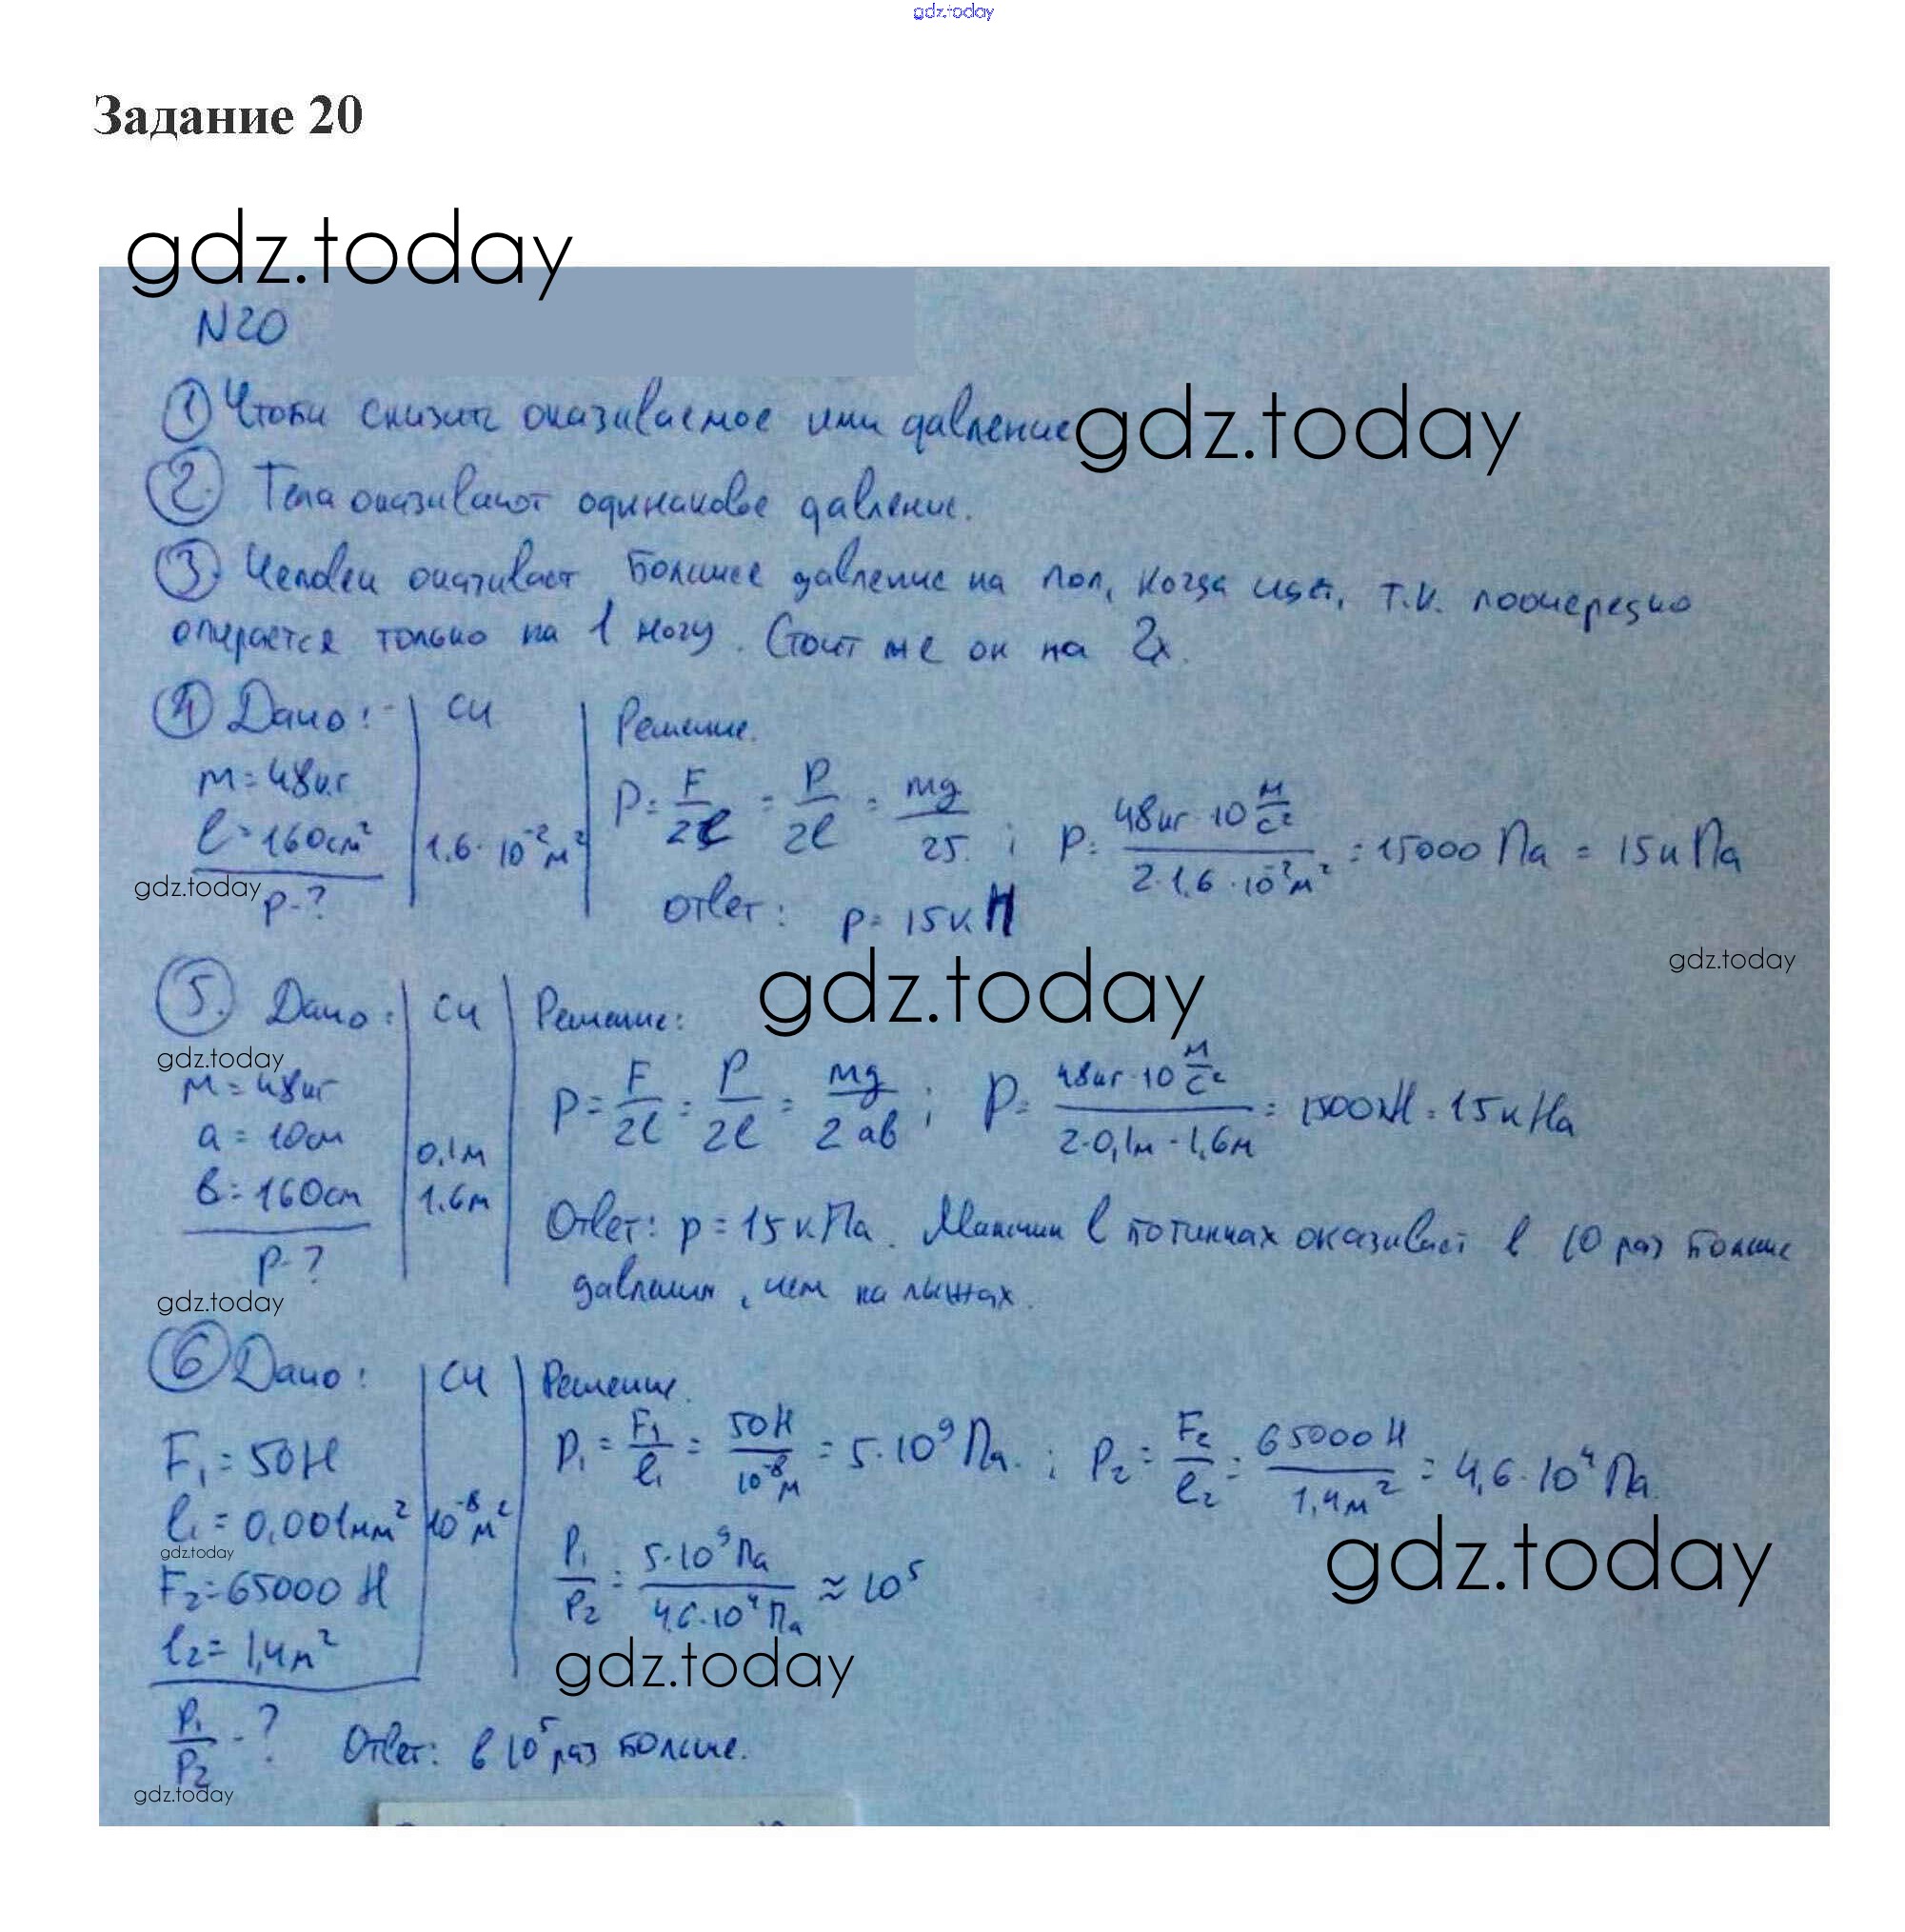 gdz.today
Задание 20
gdz.today
N20
① Чтобы снизить оказываемое ими давление gdz.today
② Тела оказывают одинаковое давление.
③ Человек оказывает большее давление на пол, когда идёт, т.к. поочередно
опирается только на 1 ногу. Стоит же он на 2х.
④ Дано: СИ Решение.
m = 48кг
l = 160см² 1,6·10⁻²м²
p = F/2l = P/2l = mg/2S ; p = 48кг·10 м/с² / 2·1,6·10⁻²м² = 15000 Па = 15кПа
gdz.today
p - ?
Ответ: p = 15кН
gdz.today
gdz.today
⑤. Дано: СИ Решение:
gdz.today
m = 48кг
a = 10см 0,1м
в = 160см 1,6м
p = F/2l = P/2l = mg/2ав ; p = 48кг·10 м/с² / 2·0,1м·1,6м = 1500Н = 15кПа
p - ?
Ответ: p = 15кПа. Мальчик в ботинках оказывает в 10 раз больше
давления, чем на лыжах.
gdz.today
⑥ Дано: СИ Решение.
F₁ = 50Н
l₁ = 0,001мм² 10⁻⁸м²
gdz.today
F₂ = 65000 Н
l₂ = 1,4м²
p₁ = F₁/l₁ = 50Н/10⁻⁸м = 5·10⁹ Па. ; p₂ = F₂/l₂ = 65000 Н/1,4м² = 4,6·10⁴ Па.
p₁/p₂ = 5·10⁹ Па/4,6·10⁴ Па ≈ 10⁵
gdz.today
gdz.today
p₁/p₂ - ? Ответ: в 10⁵ раз больше.
gdz.today